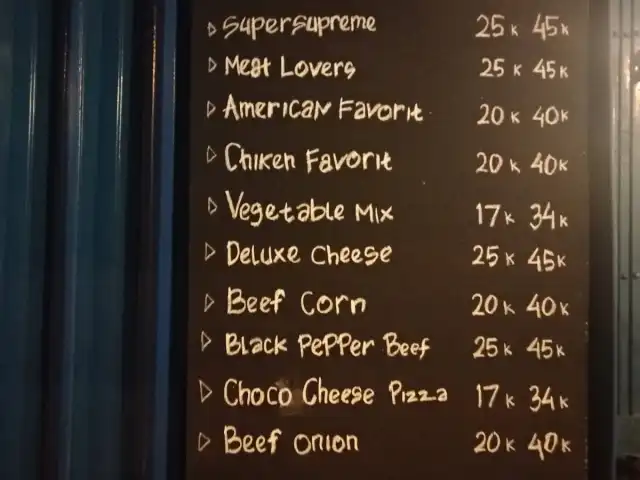 Supersupreme 25K 45K
Meat Lovers 25K 45K
American Favorit 20K 40K
Chiken Favorit 20K 40K
Vegetable Mix 17K 34K
Deluxe Cheese 25K 45K
Beef Corn 20K 40K
Black Pepper Beef 25K 45K
Choco Cheese Pizza 17K 34K
Beef Onion 20K 40K